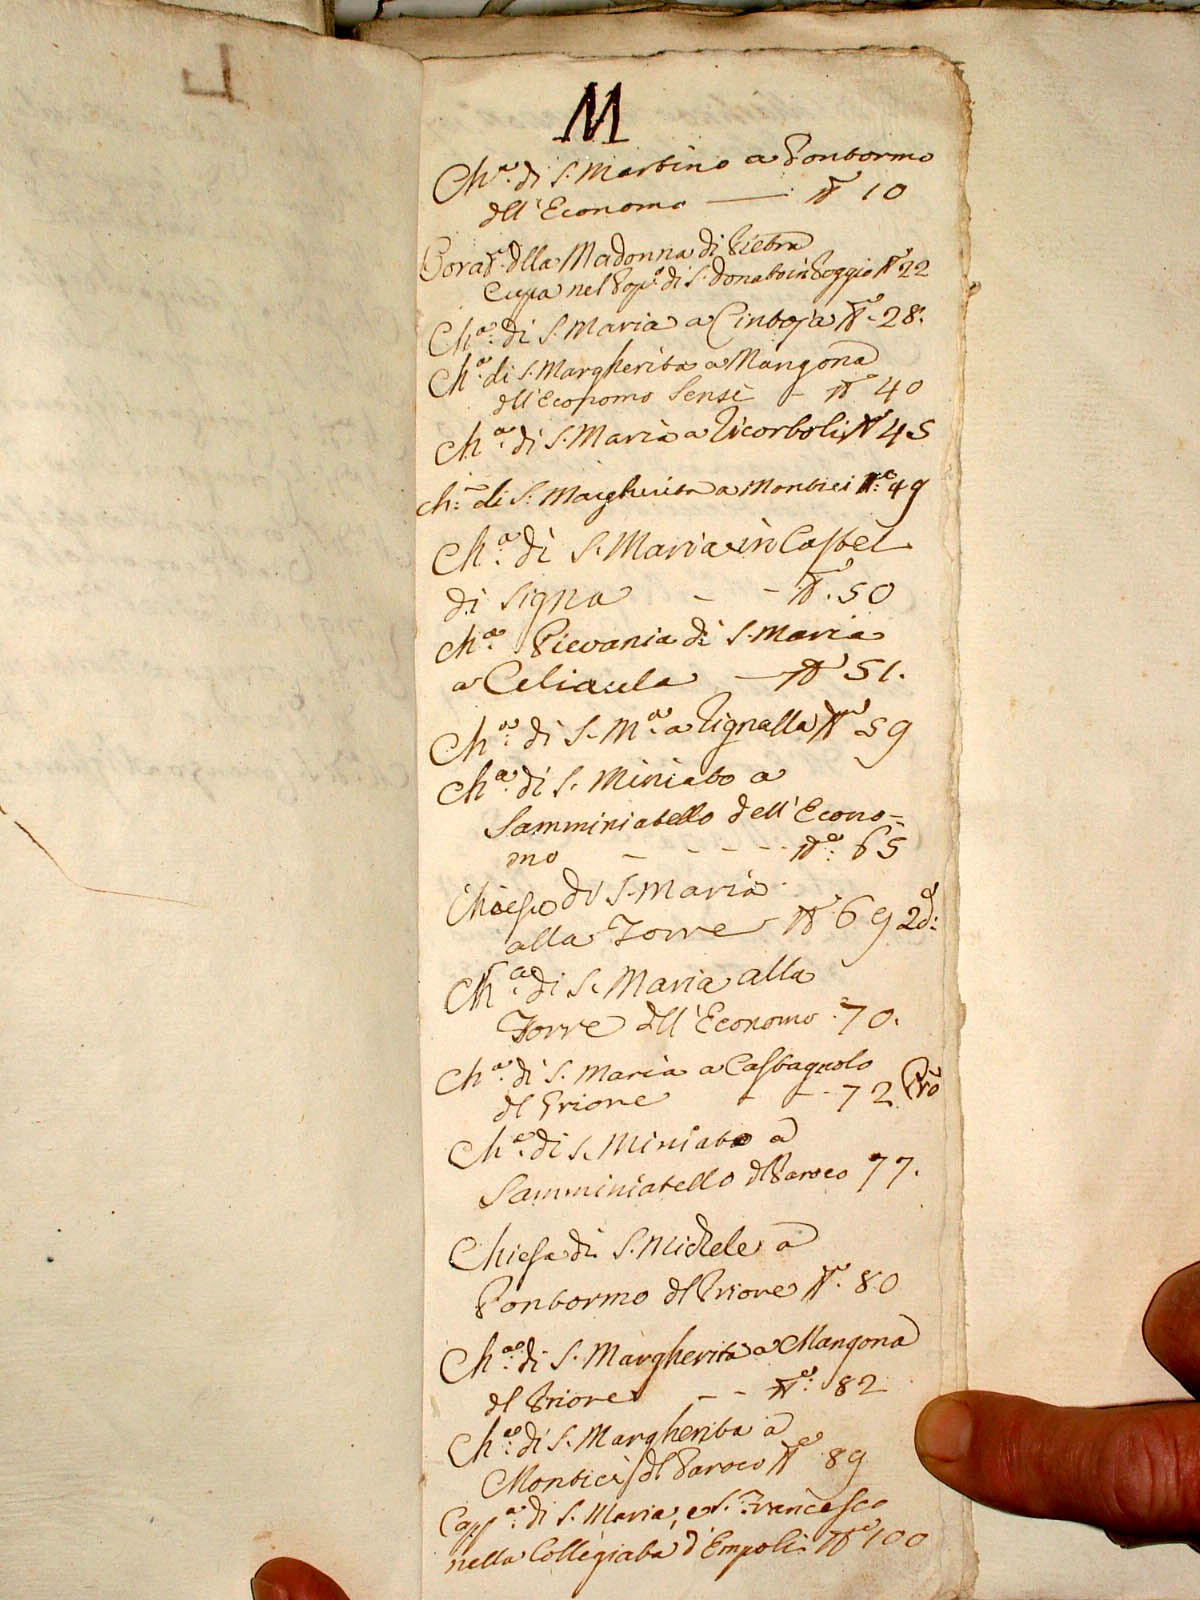 L
M
Ch.a di S. Martino a Pontormo
dell'Economo — N.o 10
Orat.o della Madonna di Pietra
Cupa nel Pop.o di S. Donato in Poggio N.o 22
Ch.a di S. Maria a Cintoja N.o 28.
Ch.a di S. Margherita a Mangona
dell'Economo Sensi - N.o 40
Ch.a di S. Maria a Ricorboli N.o 45
Ch.a di S. Margherita a Montici N.o 49
Ch.a di S. Maria in Castel
di Signa - - N.o 50
Ch.a Pievania di S. Maria
a Celiaula — N.o 51.
Ch.a di S. M.a a Lignalla N.o 59
Ch.a di S. Miniato a
Samminiatello dell'Econo=
mo - - - - - N.o 65
Chiesa di S. Maria
alla Torre N.o 69 2d:
Ch.a di S. Maria alla
Torre dell'Economo 70.
Ch.a di S. Maria a Castagnolo
del Priore - - 72
Ch.a di S. Miniato a
Samminiatello del Paroco 77.
Chiesa di S. Michele a
Pontormo del Priore N.o 80
Ch.a di S. Margherita a Mangona
del Priore - - N.o 82
Ch.a di S. Margherita a
Montici del Paroco N.o 89
Capp.a di S. Maria, e S. Francesco
nella Collegiata d'Empoli N.o 100